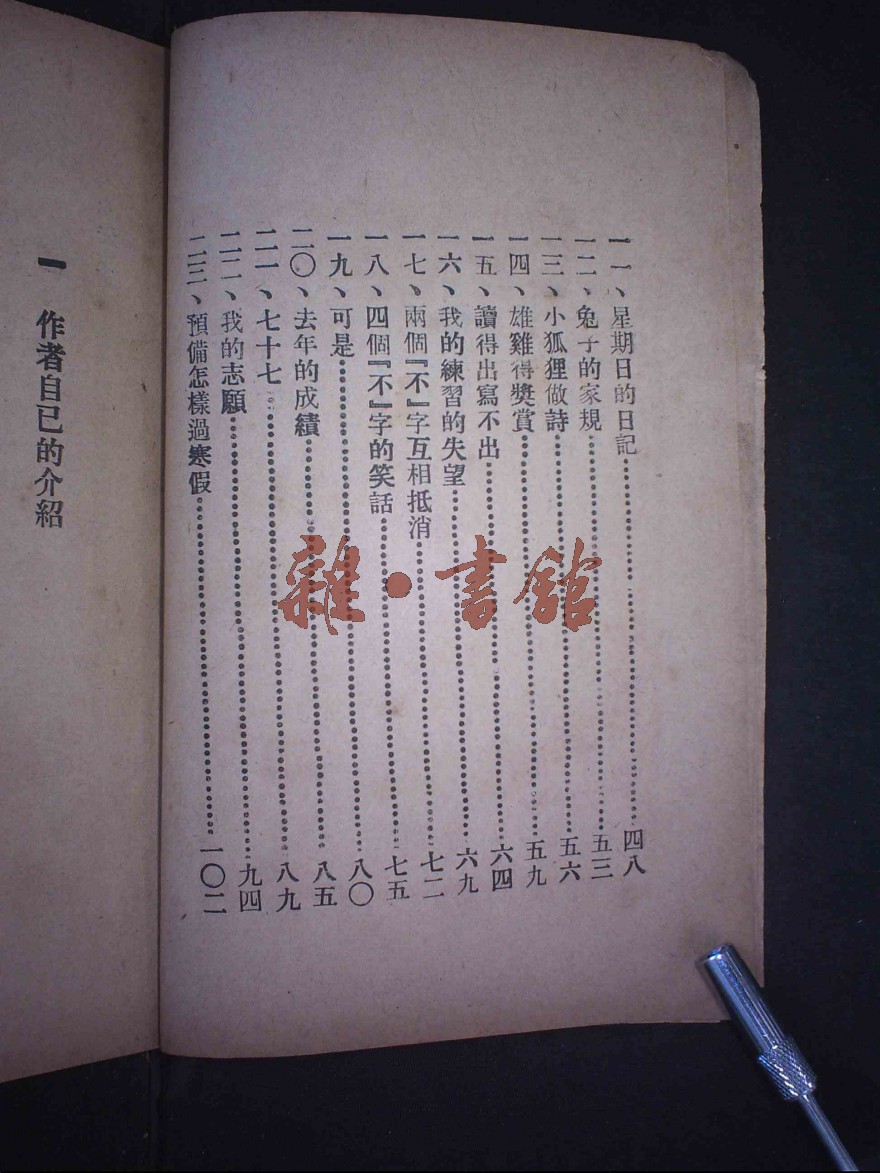 一一、星期日的日記……四八
一二、兔子的家規……五三
一三、小狐狸做詩……五六
一四、雄雞得獎賞……五九
一五、讀得出寫不出……六四
一六、我的練習的失望……六九
一七、兩個『不』字互相抵消……七二
一八、四個『不』字的笑話……七五
一九、可是……八〇
二〇、去年的成績……八五
二一、七十七……八九
二二、我的志願……九四
二三、預備怎樣過寒假……一〇二
一 作者自己的介紹
雜·書館